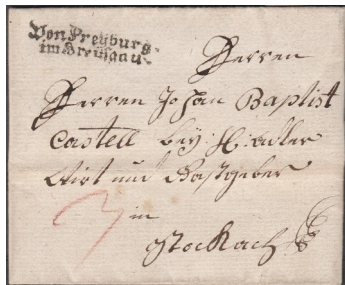 Von Freyburg
im Breisgau.
Herren
Herren Johan Baptist
Castell bey H: adler
Wirt und Gastgeber
in
Stockach